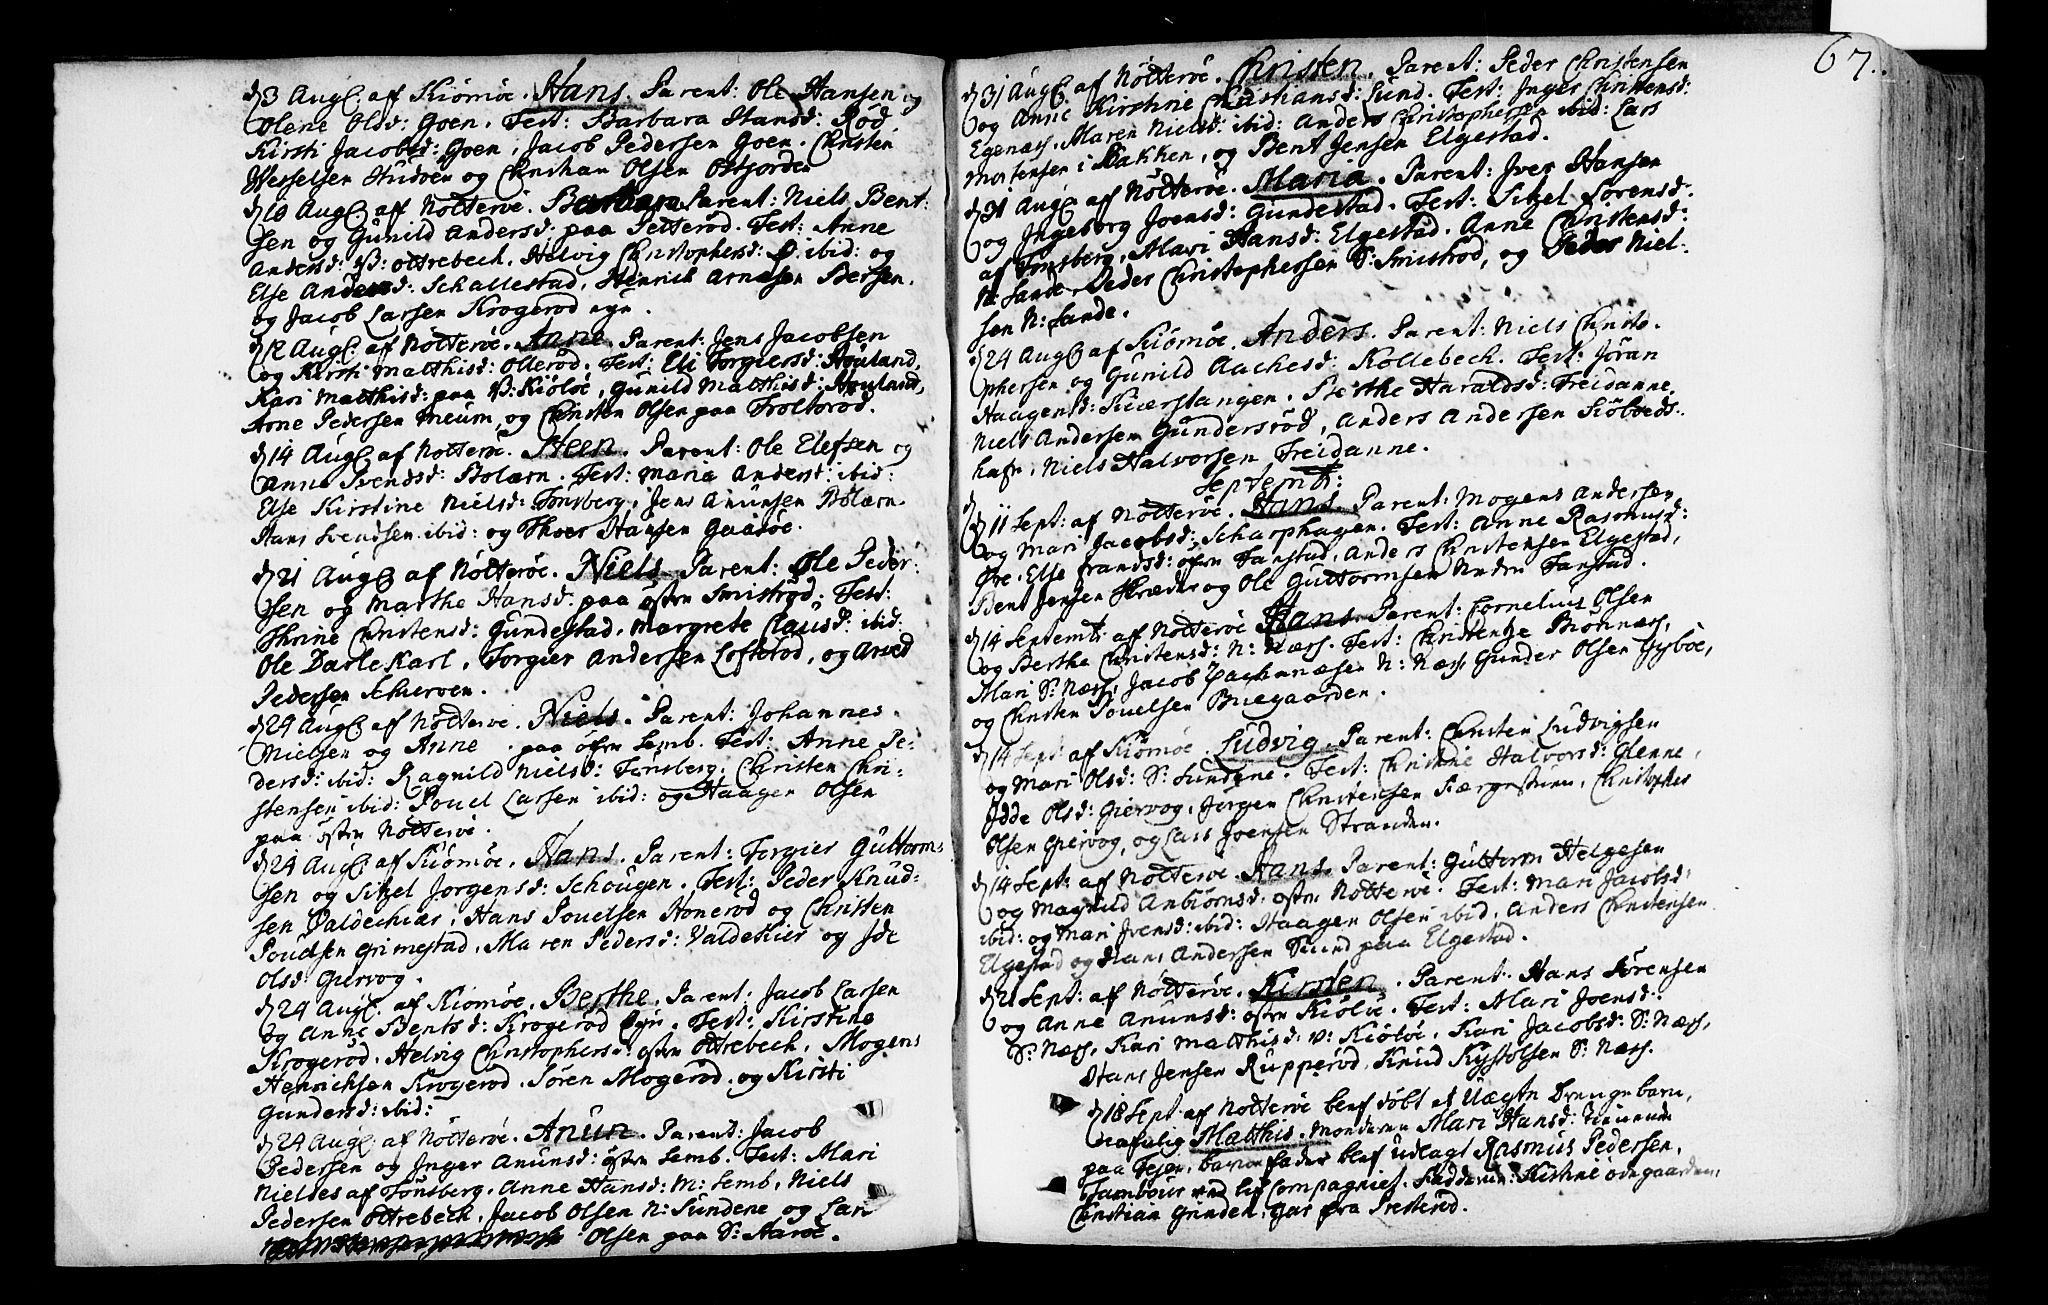 d 3 Aug: af Kiömöe. Hans. Parent: Ole Hansen og
Olene Olsd: Goen. Test: Barbara Hansd: Röd
Kirsti Jacobsd: Goen, Jacob Pedersen Goen. Christen
Wesselsen Hudöen og Christian Olsen Östjorden
d 10 Aug: aff Nötteröe. Barbara Parent: Niels Bent:
sen og Gunild Andersd: paa Petteröd. Test: Anne
Andersd: V: Ottrebech, Helvig Christophersd: Ö: ibid: og
Else Andersd: Schallestad, Henrich Arnesen Bersen.
og Jacob Larsen Krogeröd eyn.
d 12 Aug: af Nötteröe. Anne. Parent: Jens Jacobsen
og Kirsti Matthisd: Olleröd. Test: Eli Torgiersd: Houland,
Kari Matthisd: paa V: Kiölöe, Gunild Matthisd: Houland,
Arne Pedersen Meum, og Christen Olsen paa Trolleröd.
d 14 Aug: af Nötteröe. Steen. Parent: Ole Elefsen og
Anne Svendsd: Bolærn. Test: Maria Andersd: ibid:
Else Kirstine Nielsd: Tönsberg, Jens Anunsen Bolærn.
Hans Svendsen ibid: og Thoer Hansen Gaasöe.
d 21 Aug: af Nötteröe. Niels Parent: Ole Peder:
sen og Marthe Hansd: paa östre Smiströd. Test:
Thrine Christensd: Gundestad. Margrete Clausd: ibid:
Ole Darlekarl, Torgier Andersen Lofteröd, og Arved
Pedersen Schierven.
d 24 Aug: af Nötteröe. Niels. Parent: Johannes
Nielsen og Anne . paa öfre Semb. Test: Anne Pe:
dersd: ibid: Ragnild Nielsd: Tönsberg, Christen Chri:
stensen ibid: Povel Larsen ibid: og Haagen Olsen
paa östre Nötteröe.
d 24 Aug: af Kiömöe. Hans. Parent: Torgier Guttorm:
sen og Sitzel Jörgensd: Schougen. Test: Peder Knud:
sen Valdechiær, Hans Povelsen Honeröd og Christen
Povelsen Grimestad, Maren Pedersd: Valdekier og Ide
Olsd: Giervog.
d 24 Aug: af Kiömöe. Berthe. Parent: Jacob Larsen
og Anne Bentsd: Krogeröd Eyn. Test: Kirstine
Krogeröd. Helvig Christophersd: östre Ottrebech, Mogens
Henrichsen Krogeröd. Sören Mogeröd. og Kirsti
Gundersd: ibid:
d 24 Aug: af Nötteröe. Anun. Parent: Jacob
Pedersen og Inger Anunsd: östre Semb. Test: Mari
Nieldes af Tönsberg. Anne Hansd: M: Semb, Niels
Pedersen Ottrebech, Jacob Olsen N: Sundene og Lars
Olsen paa S: Aaröe.
67.
d 31 Aug: af Nötteröe. Christen. Parent: Peder Christensen
og Anne Kirstine Christiansd: Lund. Test: Inger Christensd:
Egenæss. Maren Nielsd: ibid: Anders Christophersen ibid: Lars
Mortensen i Bakken, og Bent Jensen Elgestad.
d 31 Aug: af Nötteröe. Maria. Parent: Iver Hansen
og Ingeborg Joensd: Gundestad. Test: Sitzel Sörensd:
af Tönsberg, Mari Hansd: Elgestad. Anne Christensd:
N: Sande, Peder Christophersen S: Smiströd, og Peder Niel:
sen N: Sande.
d 24 Aug: af Kiömöe. Anders. Parent: Niels Christo-
phersen og Gunild Aachesd: Kollebech. Test: Jöran
Haagensd: Kuærstangen. Berthe Haraldsd: Treidanne,
Niels Andersen Gundersröd, Anders Andersen Kiöbvedk:
hafn, Niels Halvorsen Treidanne.
Septemb:
d 11 Sept: af Nötteröe. Hans. Parent: Mogens Andersen
og Mari Jacobsd: Scharphagen. Test: Anne Rasmusd:
Öre. Else Frandsd: öfre Fanstad, Anders Christensen Elgestad,
Bent Jensen Skræder og Ole Guttormsen Nedre Fanstad.
d 14 Septemb: aff Nötteröe Hans Parent: Cornelius Olsen
og Berthe Christensd: N: Næss. Test: Christentze Bönnæss,
Mari S: Næss, Jacob Zachariæsen N: Næss, Gunder Olsen Gyböe,
og Christen Povelsen Buegaarden.
d 14 Sept: af Kiömöe. Ludvig. Parent: Christen Ludvigsen
og Mari Olsd: S: Sundene. Test: Christine Halvorsd: Glenne,
Idde Olsd: Giervog, Jörgen Christensen Færgestuen, Christopher
Olsen Giervog, og Lars Joensen Stranden.
d 14 Sept: af Nötteröe. Hans. Parent: Guttorm Helgesen
og Magnild Anbiörnsd: östre Nötteröe. Test: Mari Jacobsd:
ibid: og Mari Svensd: ibid: Haagen Olsen ibid, Anders Christensen
Elgestad og Hans Andersen Svend paa Elgestad.
d 21 Sept: af Nötteröe. Kirsten. Parent: Hans Sörensen
og Anne Anunsd: östre Kiölöe. Test: Mari Joensd:
S: Næss, Kari Matthisd: V: Kiölöe, Kari Jacobsd: S: Næss,
Hans Jensen Rupperöd. Knud Kystolsen S: Næss.
d 18 Sept: af Nötteröe blef döbt et Uægte Drengebarn,
nafnlig Matthis. Moderen Mari Hansd: tienende
paa Teien, barne fader blef udlagt Rasmus Pedersen,
Tambour ved Lif Compagniet. Fadderne: Kistine ödegaarden,
Christian Grinden, gar fra Presteröd.